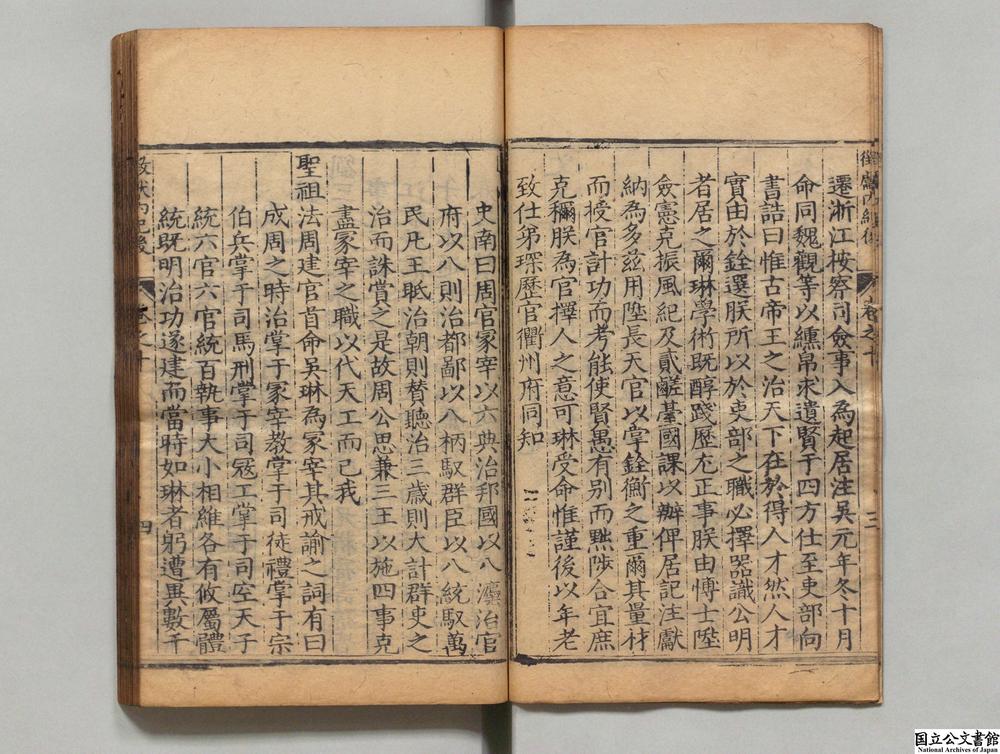 遷浙江按察司僉事入為起居注吳元年冬十月
命同魏觀等以纁帛求遺賢于四方仕至吏部尙
書誥曰惟古帝王之治天下在於得人才然人才
實由於銓選朕所以於吏部之職必擇器識公明
者居之爾琳學術既醇踐歷尤正事朕由博士陞
僉憲克振風紀及貳鹺臺國課以辦俾居記注獻
納為多茲用陞長天官以掌銓衡之重爾其量材
而授官計功而考能使賢愚有别而黜陟合宜庶
克稱朕為官擇人之意可琳受命惟謹後以年老
致仕弟琛歷官衢州府同知
三
史南曰周官冢宰以六典治邦國以八灋治官
府以八則治都鄙以八柄馭群臣以八統馭萬
民凡王眂治朝則贊聽治三歲則大計群吏之
治而誅賞之是故周公思兼三王以施四事克
盡冢宰之職以代天工而已我
聖祖法周建官首命吳琳為冢宰其戒諭之詞有曰
成周之時治掌于冢宰教掌于司徒禮掌于宗
伯兵掌于司馬刑掌于司寇工掌于司空天子
統六官六官統百執事大小相維各有攸屬體
統既明治功遂建而當時如琳者躬遭異數千
卷之十
四
国立公文書館
National Archives of Japan